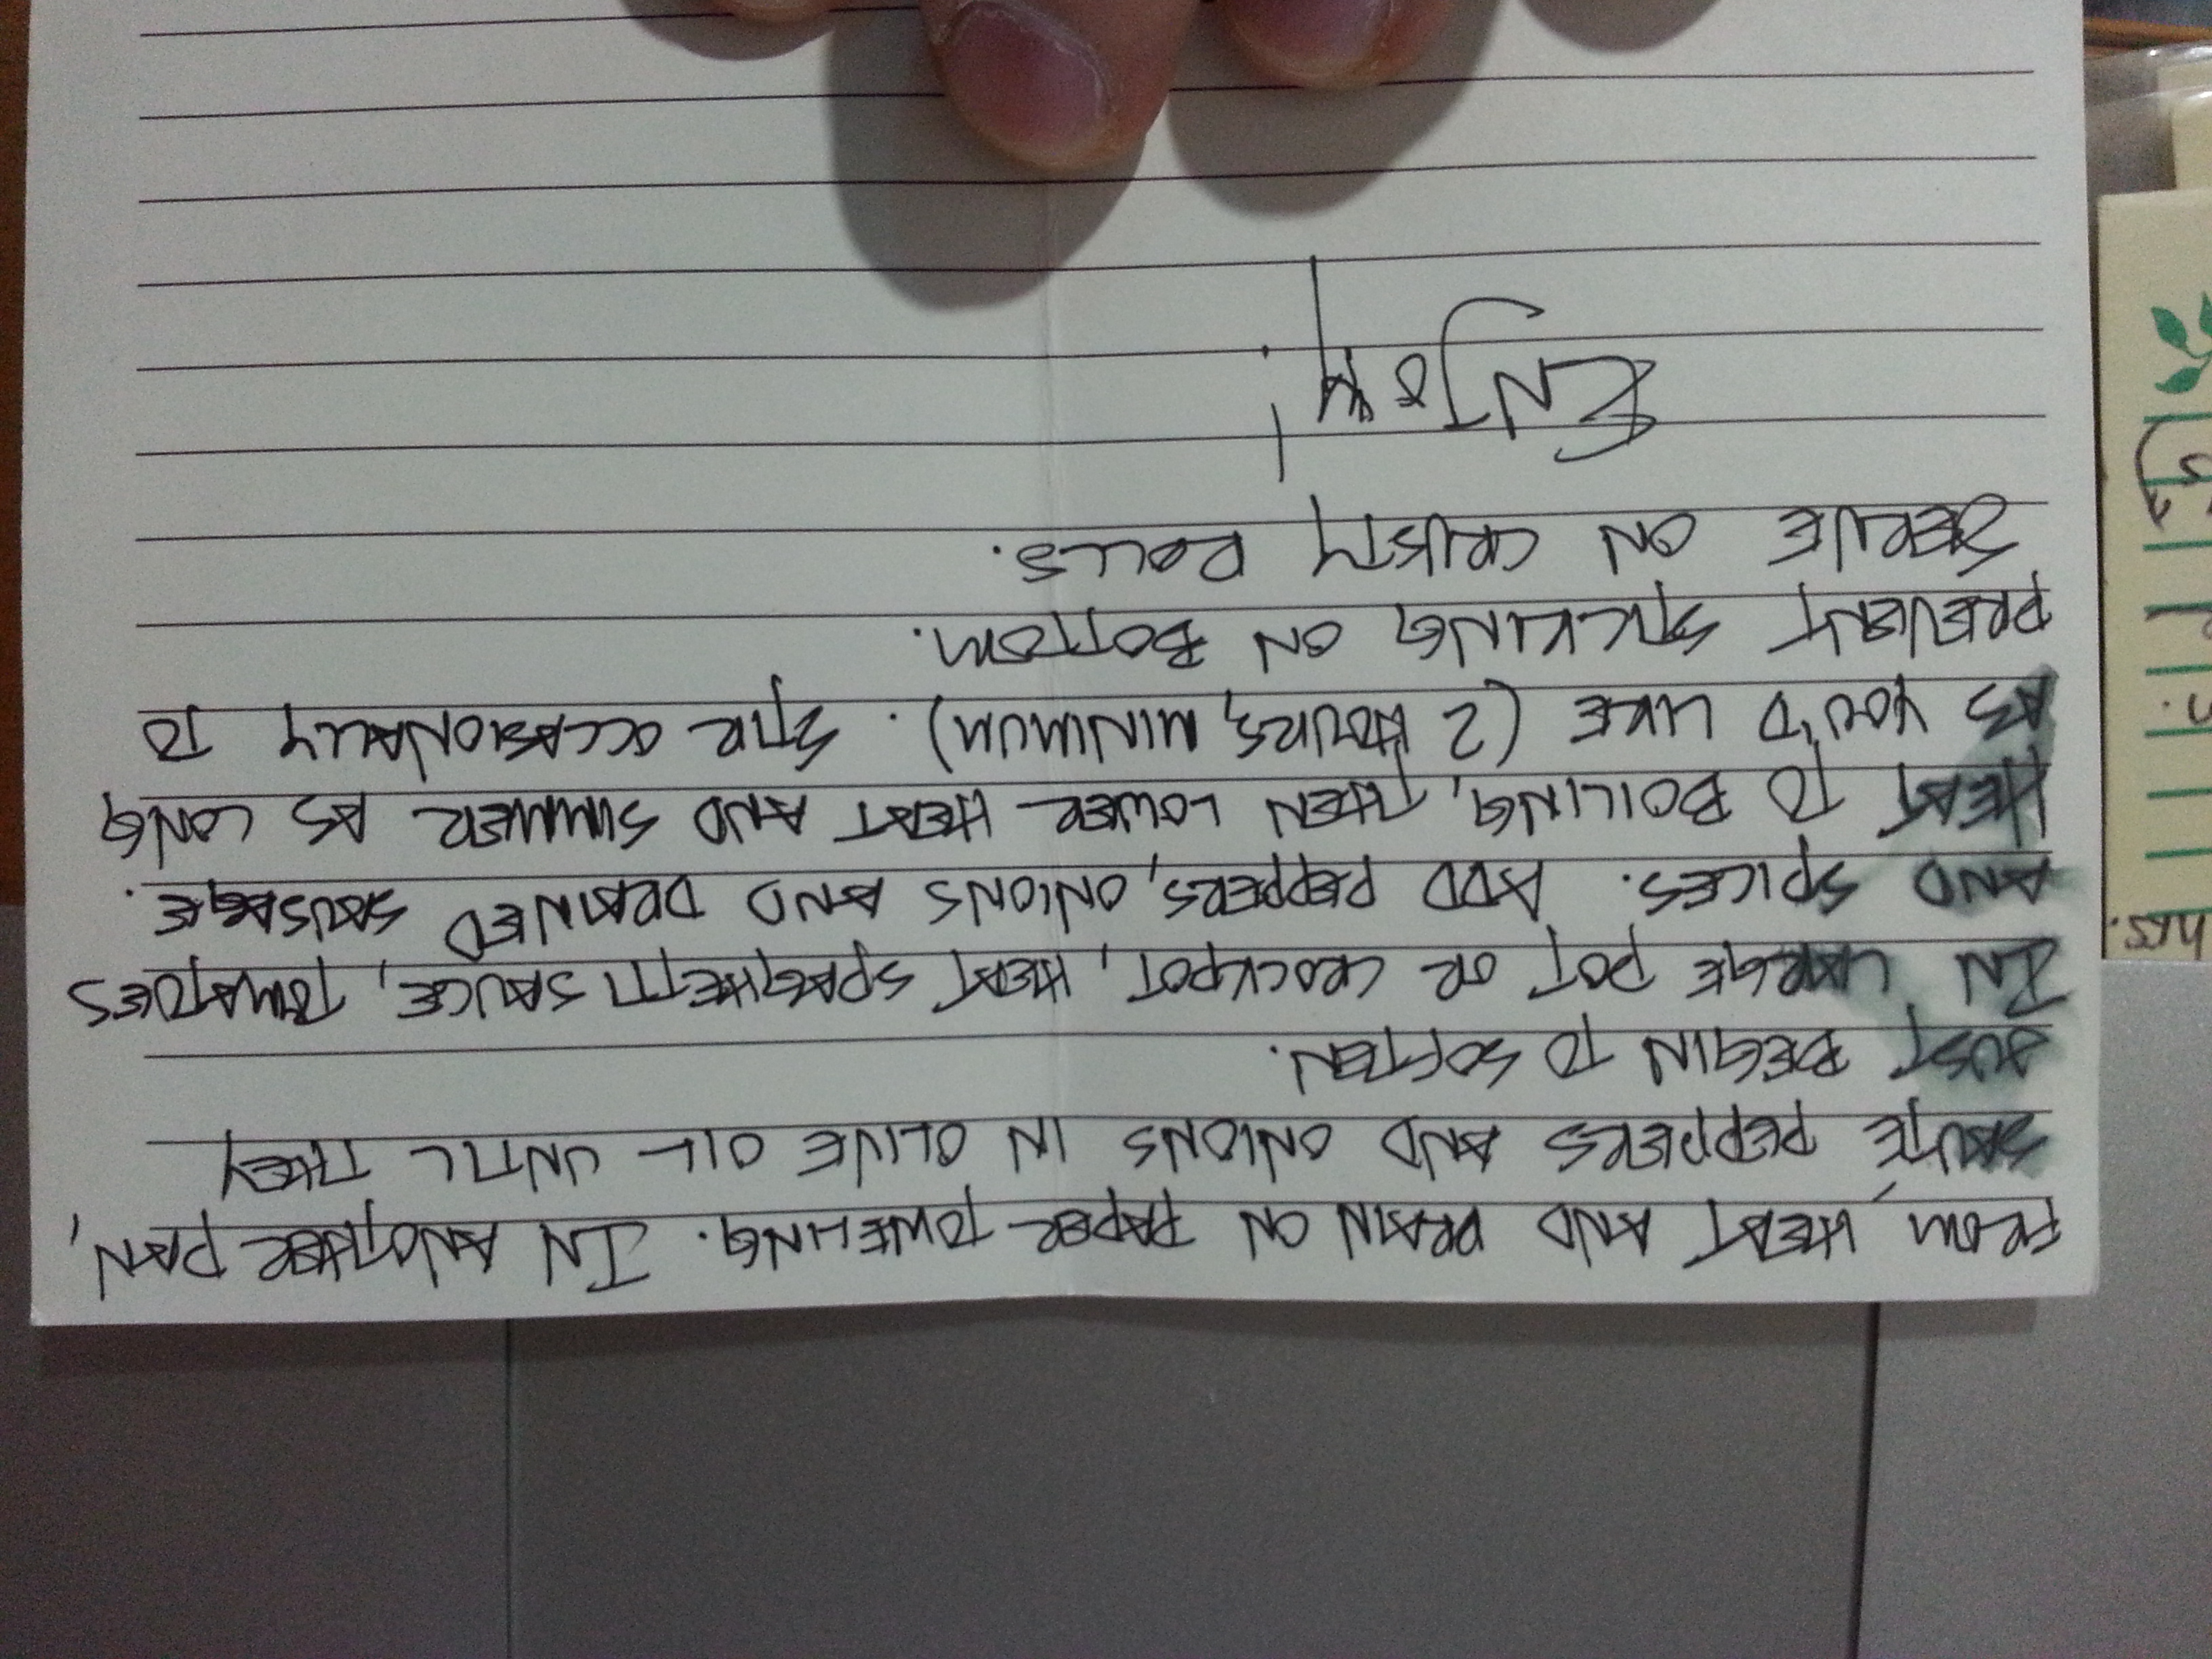 FROM HEAT AND DRAIN ON PAPER TOWELING. IN ANOTHER PAN,
SAUTÉ PEPPERS AND ONIONS IN OLIVE OIL UNTIL THEY
JUST BEGIN TO SOFTEN.
IN LARGE POT OR CROCKPOT, HEAT SPAGHETTI SAUCE, TOMATOES
AND SPICES. ADD PEPPERS, ONIONS AND DRAINED SAUSAGE.
HEAT TO BOILING, THEN LOWER HEAT AND SIMMER AS LONG
AS YOU'D LIKE (2 HOURS, MINIMUM). STIR OCCASIONALLY TO
PREVENT STICKING ON BOTTOM.
SERVE ON CRUSTY ROLLS.
ENJOY!